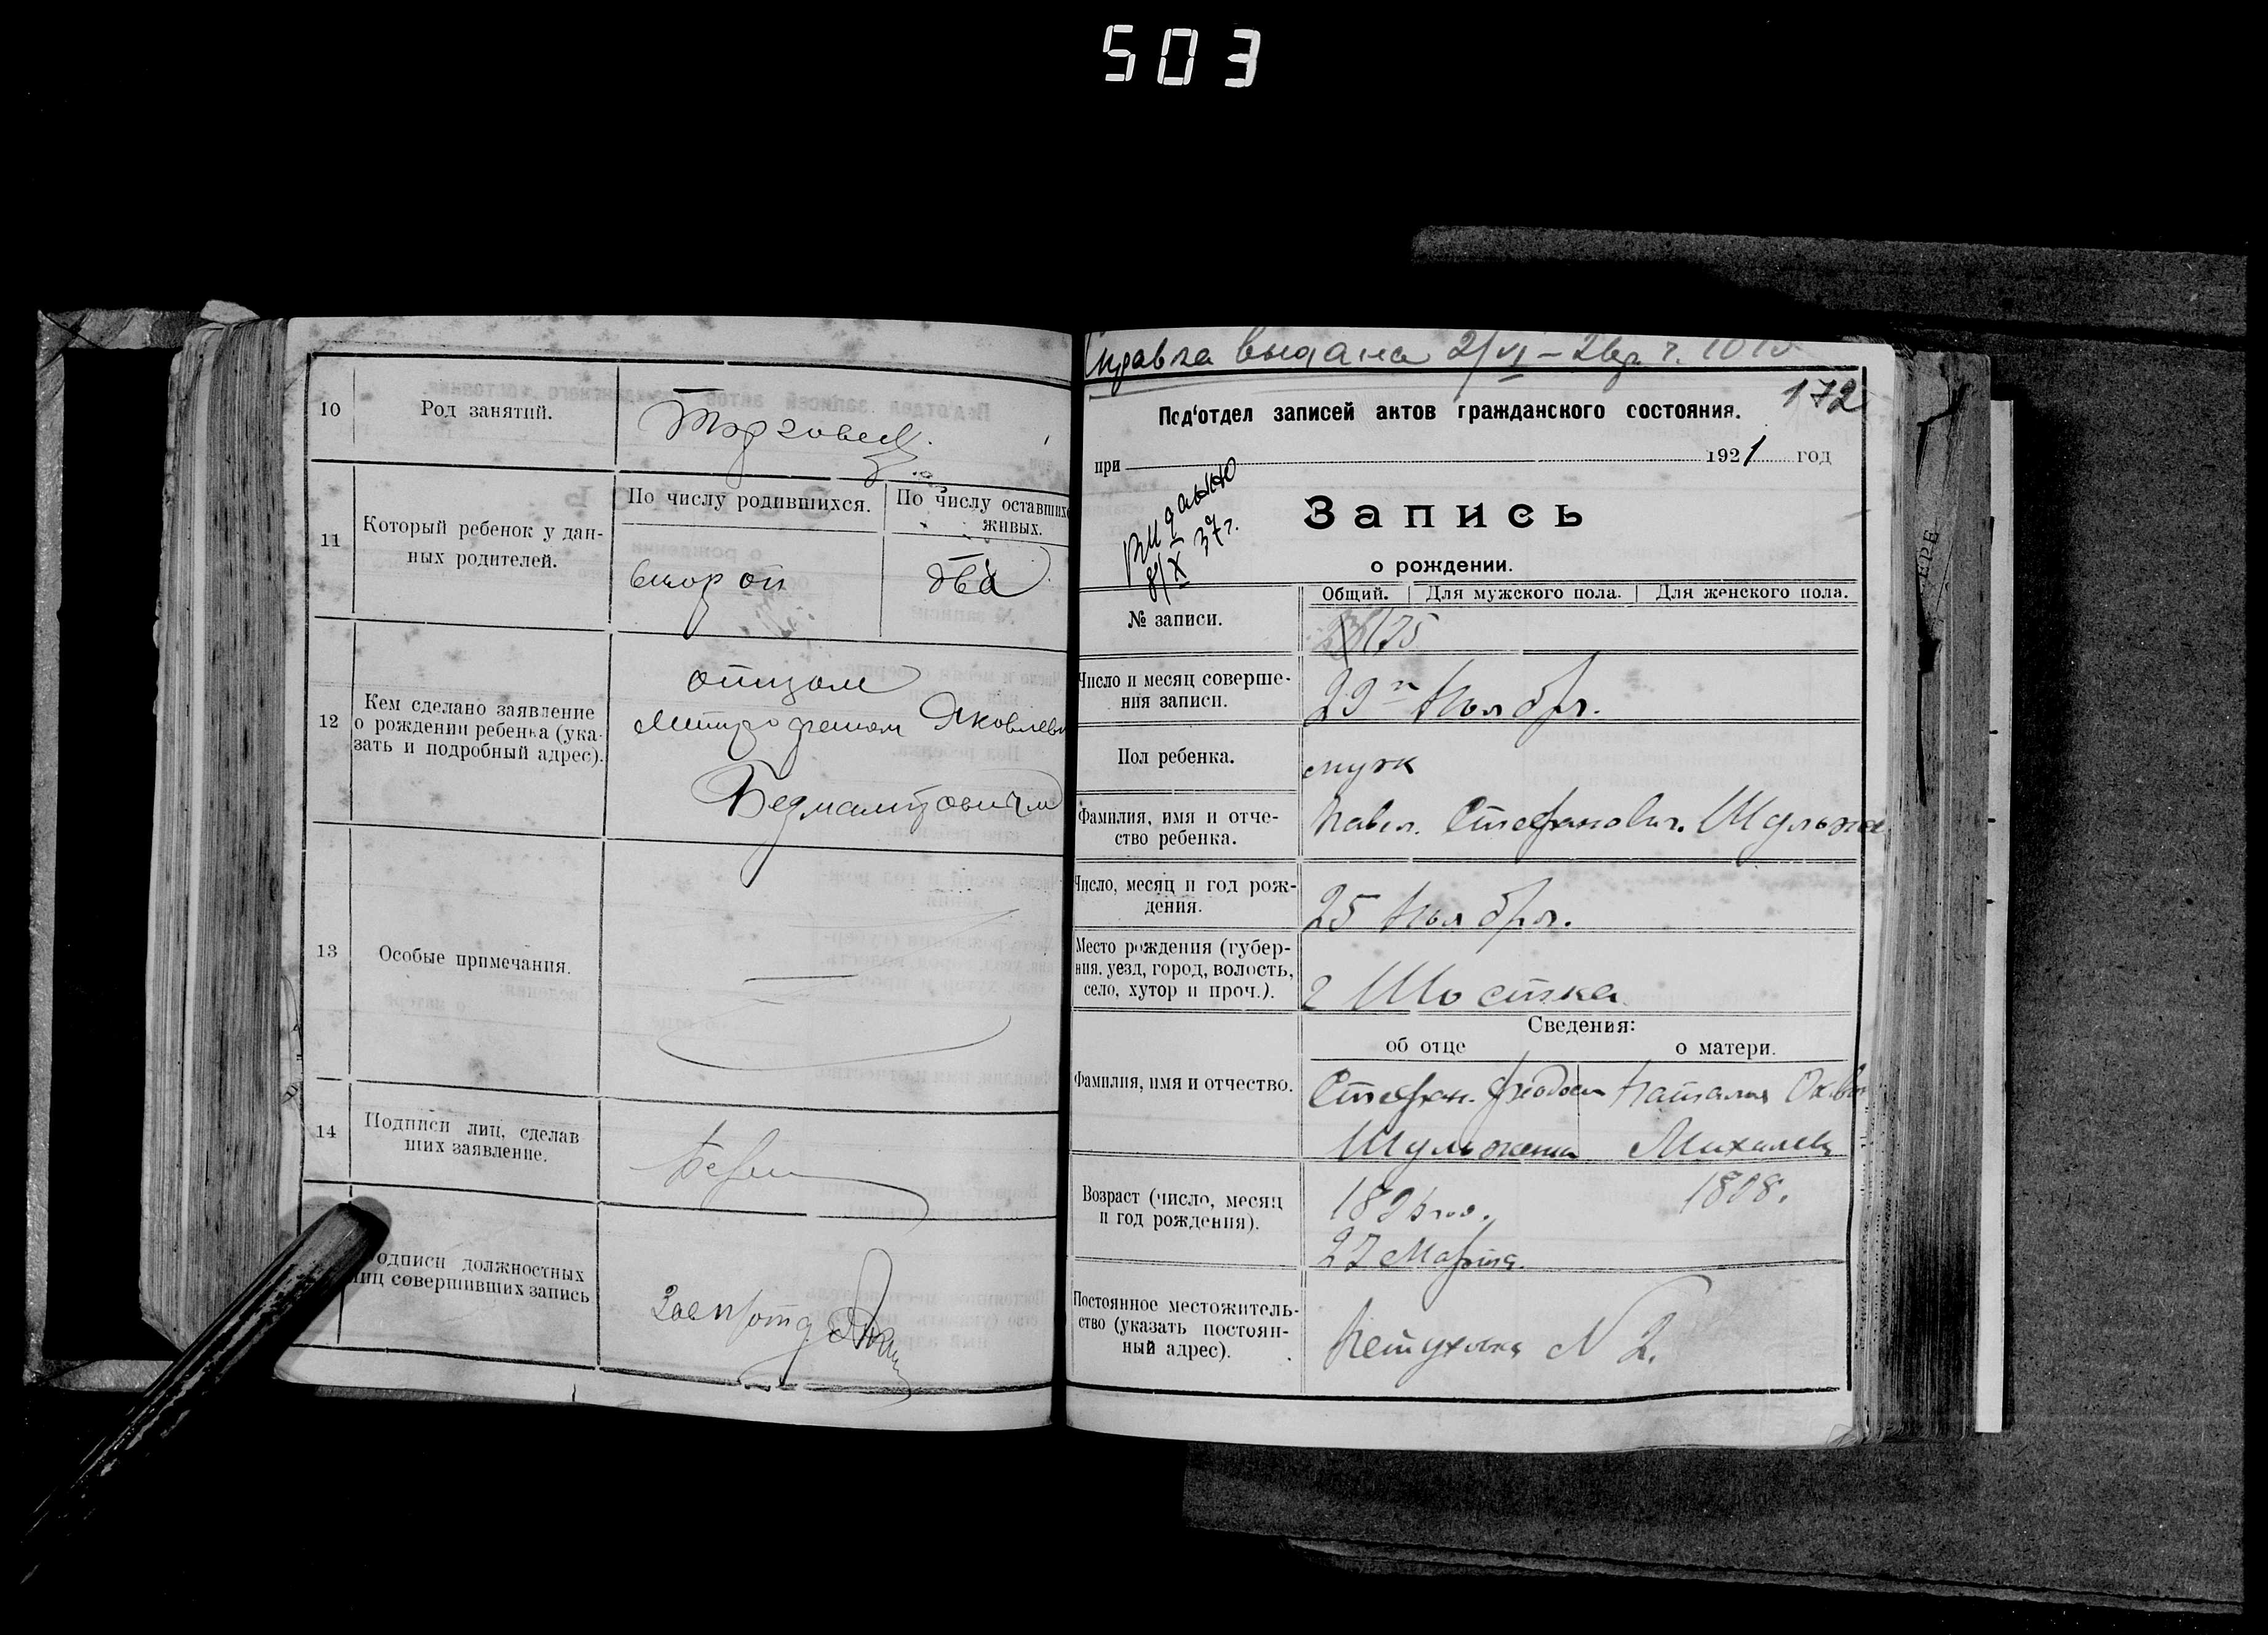 503
10
Род занятий.
Торговец.
11
Который ребенок у дан-
ных родителей.
По числу родившихся.
По числу оставшихс
живых.
второй
два
12
Кем сделано заявление
о рождении ребенка (ука-
зать и подробный адрес).
отцом
Митрофаном Яковлеви
13
Особые примечания.
14
Подписи лиц, сделав
ших заявление.
одписи должностных
лиц совершивших запись
Справка выдана 2/VI –
172
Под'отдел записей актов гражданского состояния.
при
1921 год
Видано
8/X 37 г.
Запись
о рождении.
Общий.
Для мужского пола.
Для женского пола.
№ записи.
175
Число и месяц соверше-
ния записи.
29 Ноября.
Пол ребенка.
муж
Фамилия, имя и отче-
ство ребенка.
Павел. Стефанович. Шульже
Число, месяц и год рож-
дения.
25 Ноября.
Место рождения (губер-
ния. уезд, город, волость,
село, хутор и проч.).
г Шостка
Сведения:
об отце
о матери.
Фамилия, имя и отчество.
Стефан. Феодос
Наталия
Шульженко
Михалев
Возраст (число, месяц
и год рождения).
1898.
27 Марта.
Постоянное местожитель-
ство (указать постоян-
ный адрес).
Петуховка N 2.